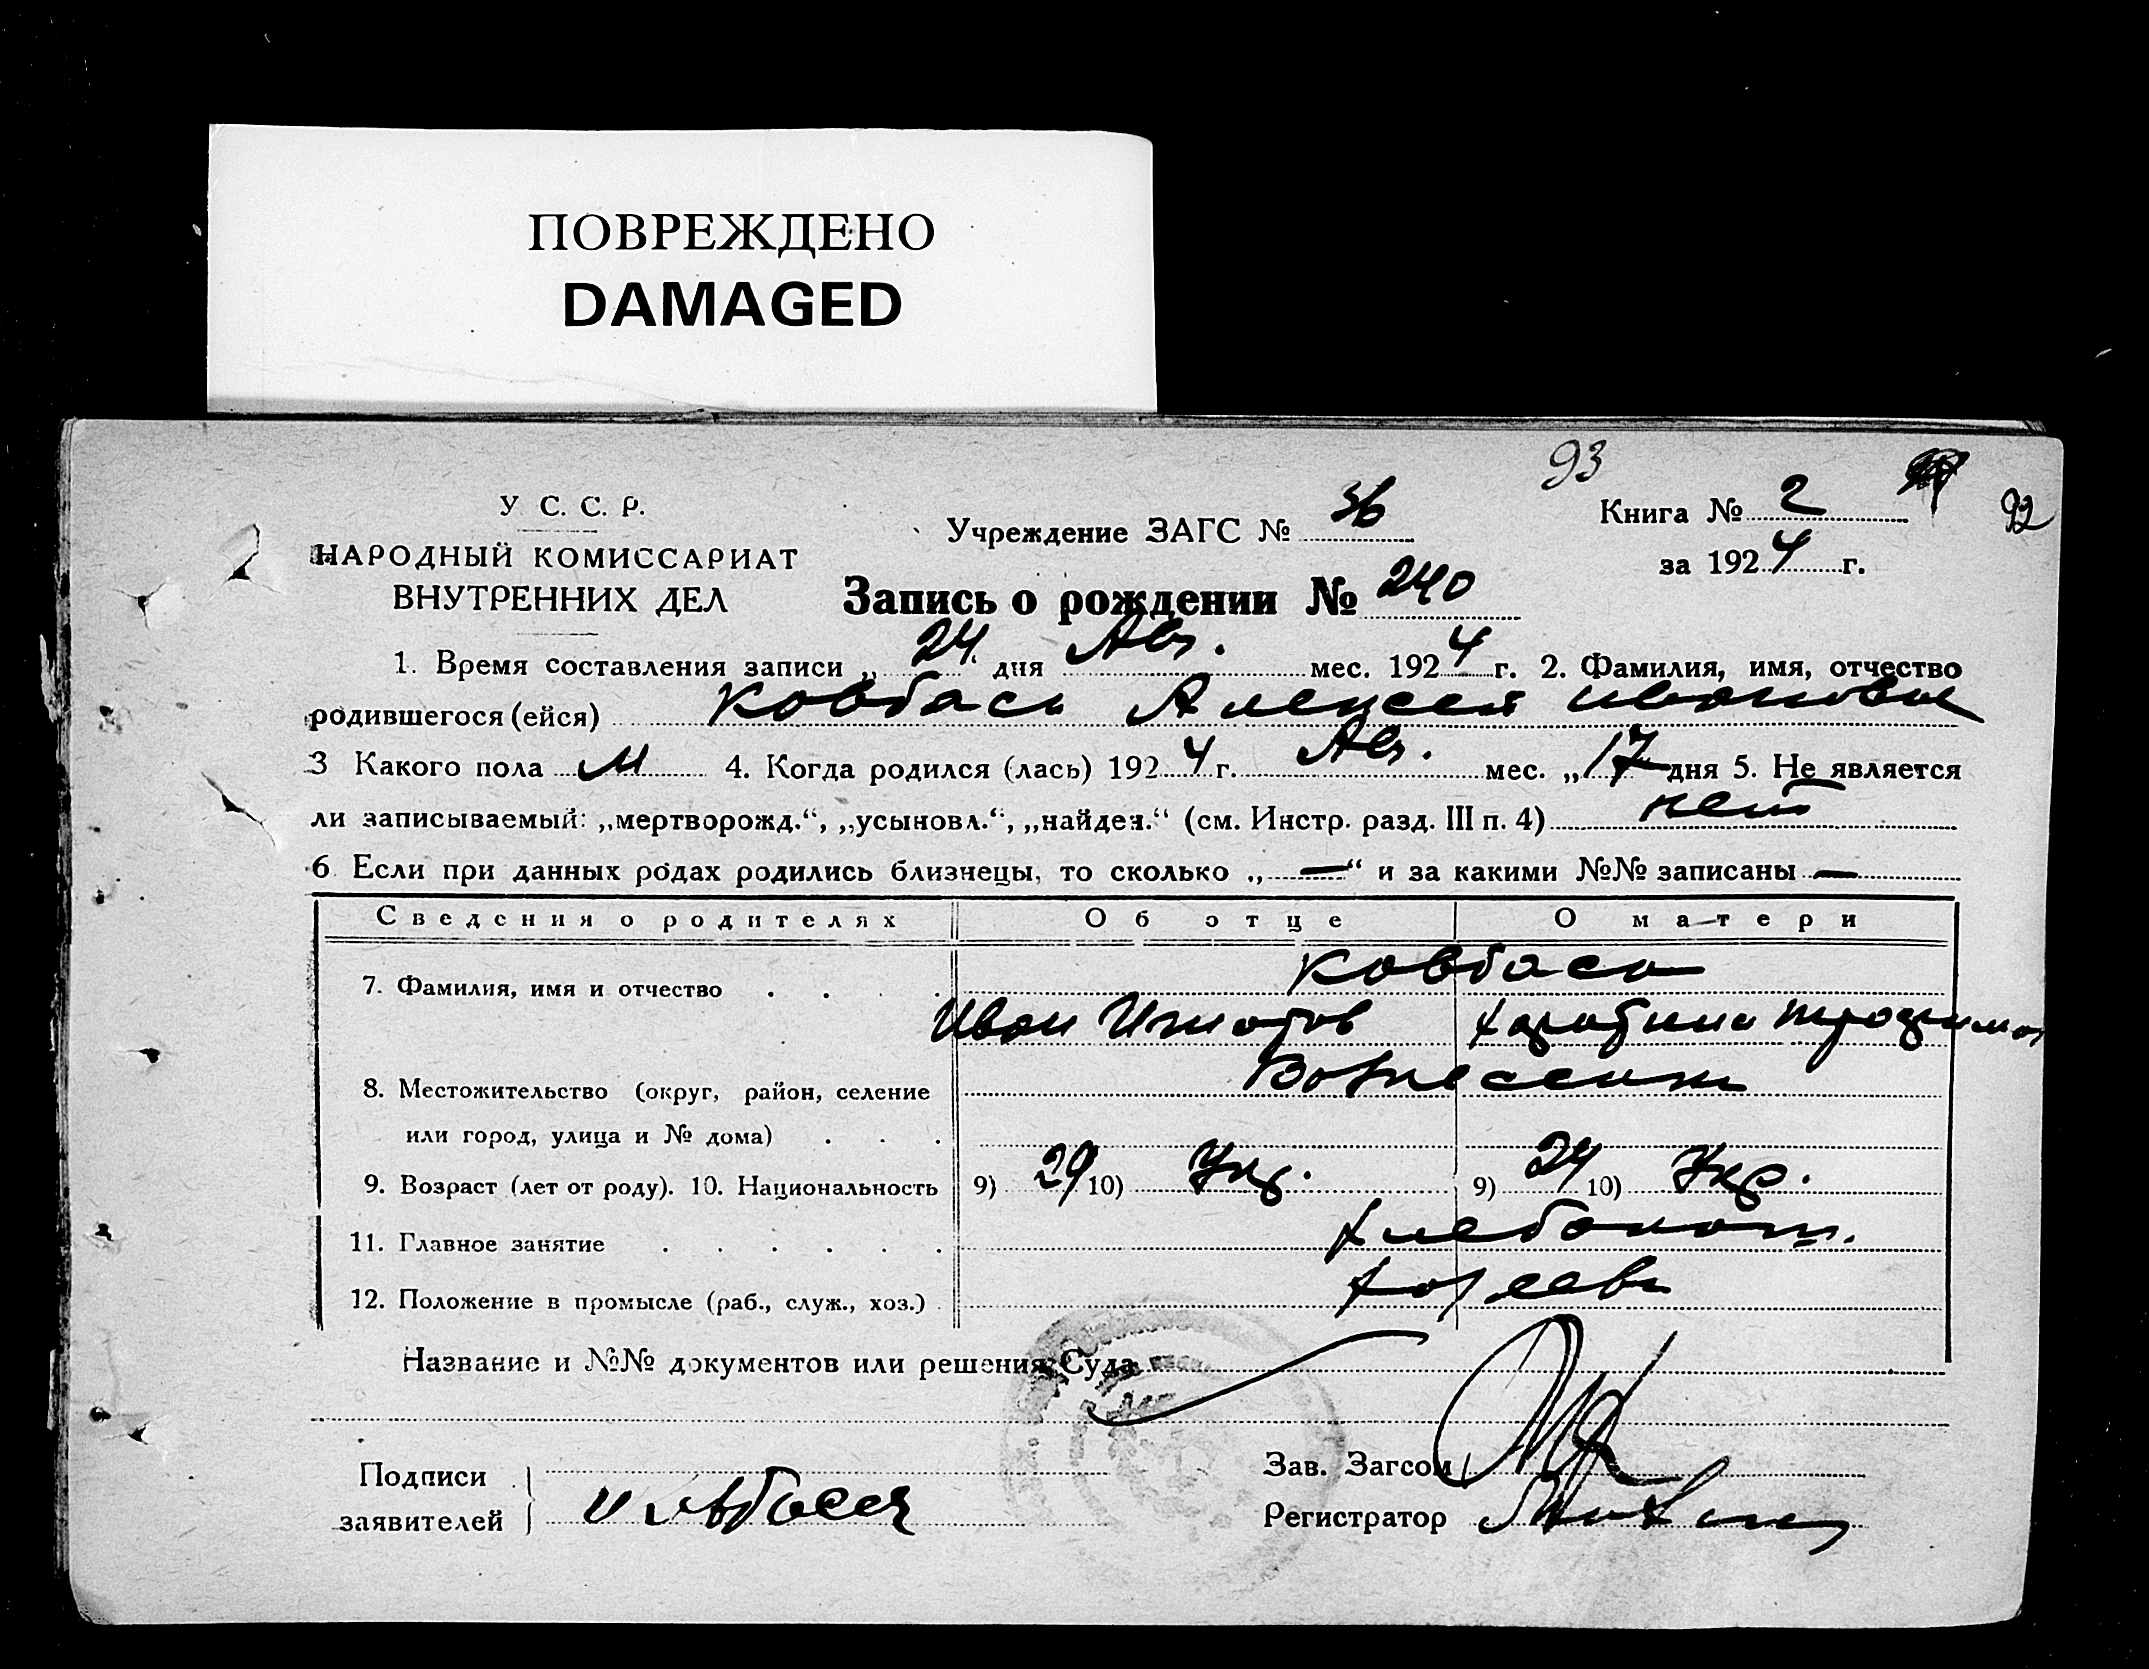 ПОВРЕЖДЕНО
DAMAGED
93
92
У. С. С. Р.
НАРОДНЫЙ КОМИССАРИАТ
ВНУТРЕННИХ ДЕЛ
Учреждение ЗАГС № 36
Книга № 2
за 1924 г.
Запись о рождении № 240
1. Время составления записи „ 24 дня Авг. мес. 1924 г. 2. Фамилия, имя, отчество
родившегося (ейся) Ковбась Алексей Иванович
3 Какого пола М 4. Когда родился (лась) 1924 г. Авг. мес. „ 17 дня 5. Не является
ли записываемый: „мертворожд.“, „усыновл.“, „найден.“ (см. Инстр. разд. III п. 4) нет
6. Если при данных родах родились близнецы, то сколько „ — “ и за какими №№ записаны —
Сведения о родителях Об отце О матери
7. Фамилия, имя и отчество Ковбась
Иван Игнатов
8. Местожительство (округ, район, селение
или город, улица и № дома)
9. Возраст (лет от роду). 10. Национальность 9) 29 10) Укр. 9) 24 10) Укр.
11. Главное занятие Хлебопаш.
12. Положение в промысле (раб., служ., хоз.) Хозяева
Название и №№ документов или решения Суда
Подписи
заявителей
Зав. Загсом
Регистратор